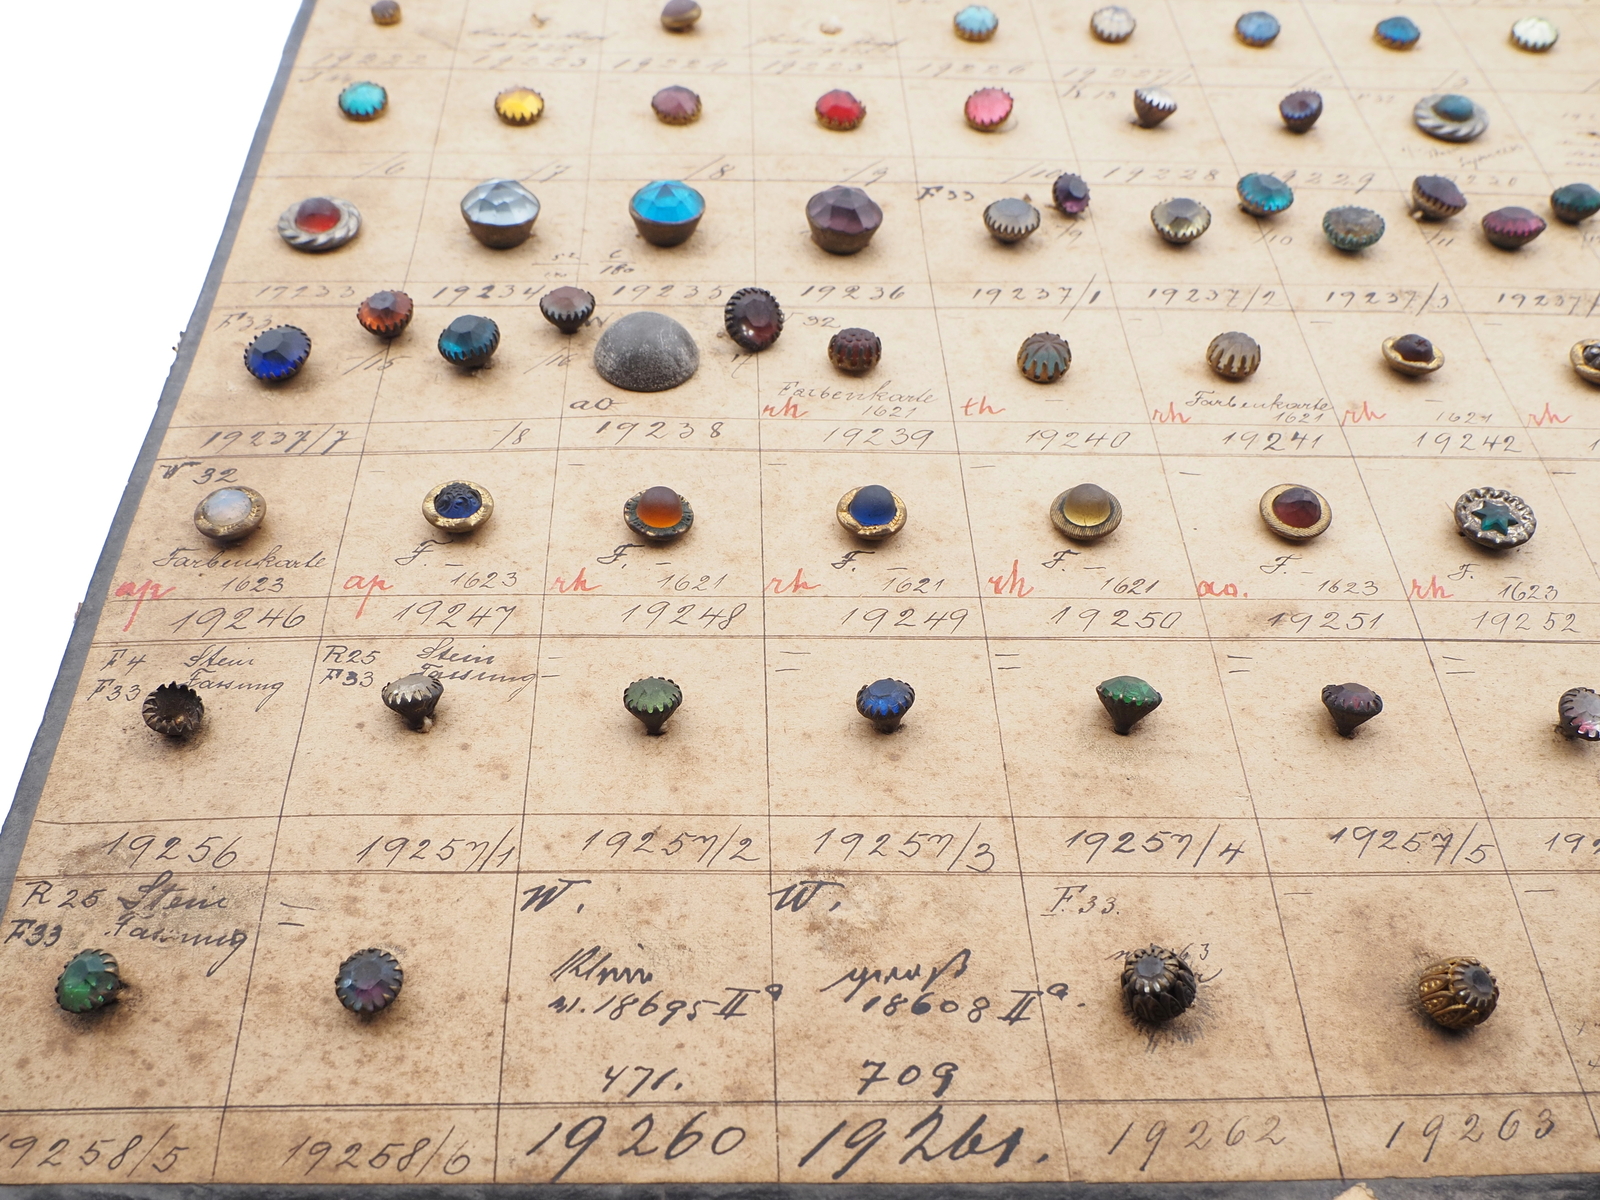 19222 19223 19224 19225 19226 19227/1 /2 /3
/6 /7 /8 /9 /10 19228 19229 19230
F33 /9 /10 /11
19233 19234 19235 19236 19237/1 19237/2 19237/3 19237/
F33 /15 /16 W 32
ao Farbenkarte Farbenkarte
rh 1621 th rh 1621 rh 1621 rh
19237/7 /8 19238 19239 19240 19241 19242
W 32
Farbenkarte F. – F. – F. – F. – F. – F. –
ap 1623 ap 1623 rh 1621 rh 1621 rh 1621 ao. 1623 rh 1623
19246 19247 19248 19249 19250 19251 19252
F4 Stein R25 Stein
F33 Fassung F33 Fassung
19256 19257/1 19257/2 19257/3 19257/4 19257/5 192
R 25 Stein W. W. F. 33.
F33 Fassung
Klein groß
n. 18695 IIa 18608 IIa.
471. 709
19258/5 19258/6 19260 19261. 19262 19263